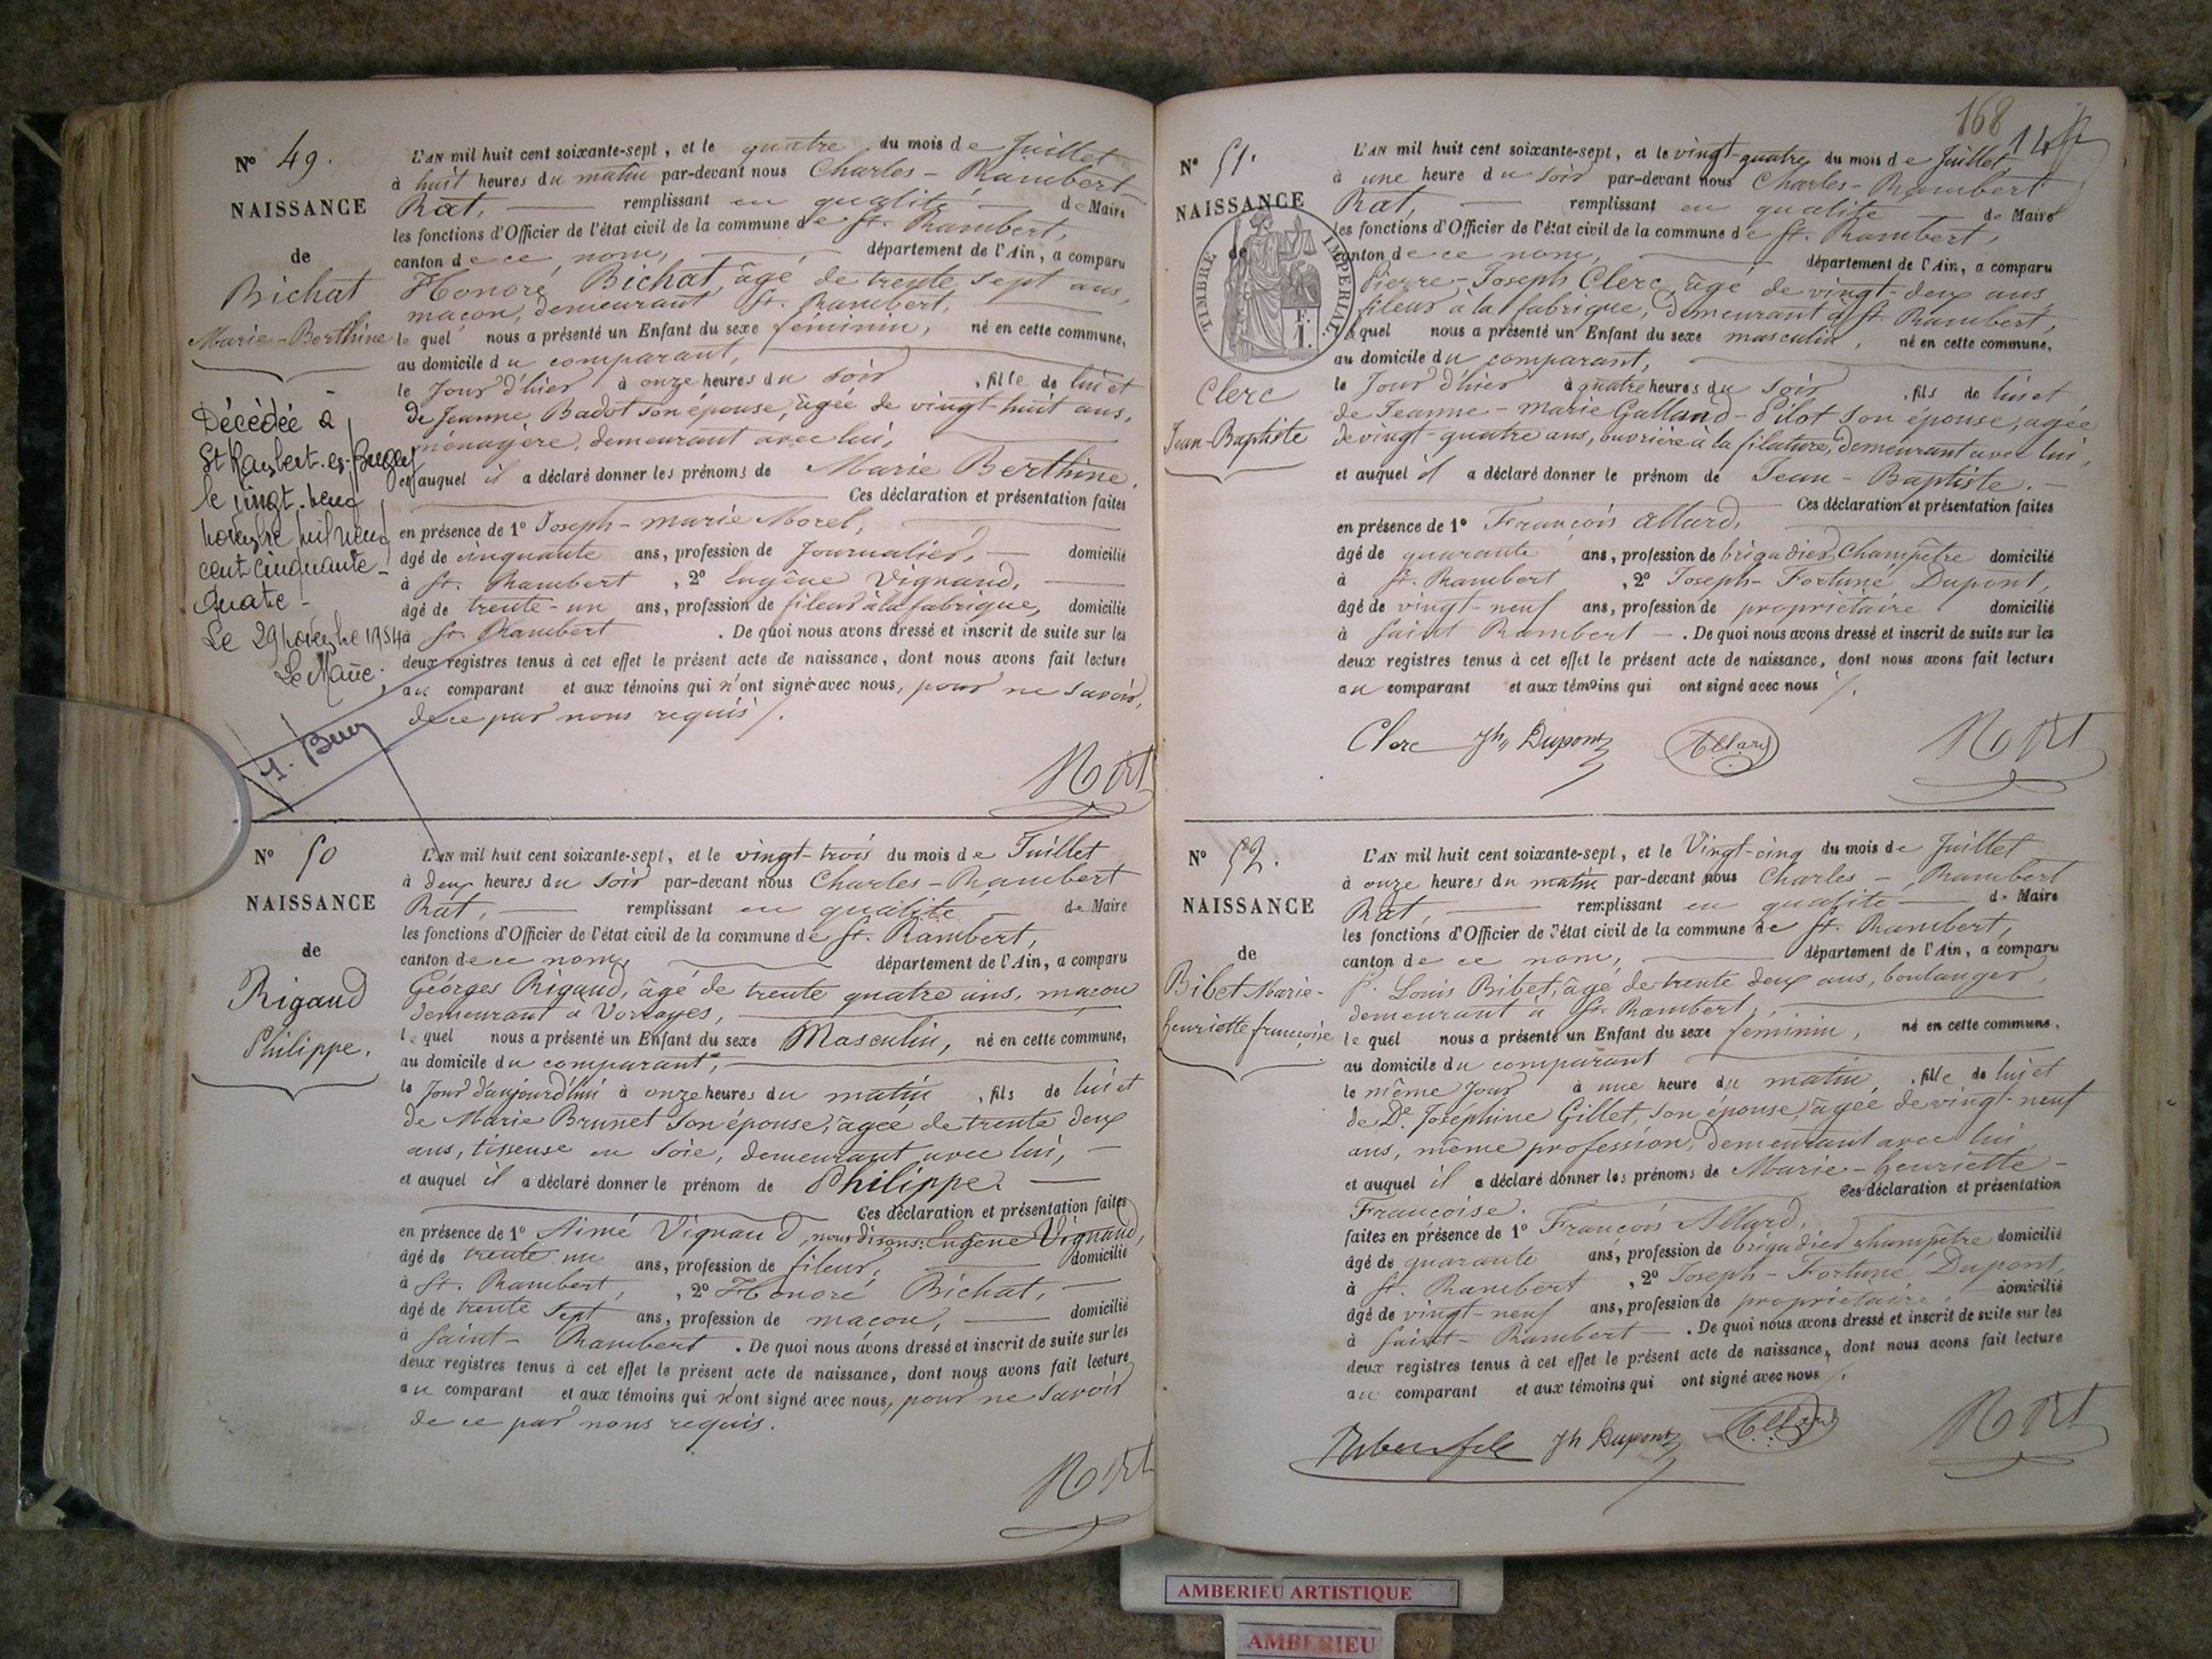 N° 49.
NAISSANCE
de
Bichat
Marie-Berthine
Décédée à
St Rambert-en-Bugey
le vingt-neuf
novembre mil neuf
cent cinquante-
quatre-
Le 29 novembre 1954
Le Maire.
L'AN mil huit cent soixante-sept, et le quatre du mois de Juillet
à huit heures du matin par-devant nous Charles-Rambert
Rat, remplissant en qualité de Maire
les fonctions d'Officier de l'état civil de la commune de St. Rambert,
canton de ce nom, département de l'Ain, a comparu
Honoré Bichat, âgé de trente sept ans,
maçon, demeurant St. Rambert,
lequel nous a présenté un Enfant du sexe féminin, né en cette commune,
au domicile du comparant,
le Jour d'hier à onze heures du soir, fille de lui et
de Jeanne Badot son épouse, âgée de vingt-huit ans,
ménagère, demeurant avec lui,
et auquel il a déclaré donner les prénoms de Marie Berthine.
Ces déclaration et présentation faites
en présence de 1° Joseph-Marie Morel,
âgé de cinquante ans, profession de Journalier, domicilié
à St. Rambert, 2° Eugêne Vignaud,
âgé de trente-un ans, profession de fileur à la fabrique, domicilié
à St. Rambert. De quoi nous avons dressé et inscrit de suite sur les
deux registres tenus à cet effet le présent acte de naissance, dont nous avons fait lecture
au comparant et aux témoins qui n'ont signé avec nous, pour ne savoir,
de ce par nous requis /.
N° 50
NAISSANCE
de
Rigaud
Philippe.
L'AN mil huit cent soixante-sept, et le vingt-trois du mois de Juillet
à deux heures du soir par-devant nous Charles-Rambert
Rat, remplissant en qualité de Maire
les fonctions d'Officier de l'état civil de la commune de St. Rambert,
canton de ce nom, département de l'Ain, a comparu
Géorges Rigaud, âgé de trente quatre ans, maçon
demeurant à Vorages,
lequel nous a présenté un Enfant du sexe Masculin, né en cette commune,
au domicile du comparant,
le Jour d'aujourd'hui à onze heures du matin, fils de lui et
de Marie Brunet son épouse, âgée de trente deux
ans, tisseuse en soie, demeurant avec lui,
et auquel il a déclaré donner le prénom de Philippe.
Ces déclaration et présentation faites
en présence de 1° Aimé Vignaud, nous disons: Eugêne Vignaud,
âgé de trente un ans, profession de fileur, domicilié
à St. Rambert, 2° Honoré Bichat,
âgé de trente sept ans, profession de maçon, domicilié
à Saint-Rambert. De quoi nous avons dressé et inscrit de suite sur les
deux registres tenus à cet effet le présent acte de naissance, dont nous avons fait lecture
au comparant et aux témoins qui n'ont signé avec nous, pour ne savoir
de ce par nous requis.
168
N° 51.
NAISSANCE
de
TIMBRE IMPERIAL
F.
1.
Clerc
Jean-Baptiste
L'AN mil huit cent soixante-sept, et le vingt-quatre du mois de Juillet
à une heure du soir par-devant nous Charles-Rambert
Rat, remplissant en qualité de Maire
les fonctions d'Officier de l'état civil de la commune de St. Rambert,
canton de ce nom, département de l'Ain, a comparu
Pierre-Joseph Clerc, âgé de vingt-deux ans,
fileur à la fabrique, demeurant à St. Rambert,
lequel nous a présenté un Enfant du sexe masculin, né en cette commune,
au domicile du comparant,
le Jour d'hier à quatre heures du soir, fils de lui et
de Jeanne-Marie Galland-Pilot son épouse, agée
de vingt-quatre ans, ouvrière à la filature, demeurant avec lui,
et auquel il a déclaré donner le prénom de Jean-Baptiste.
Ces déclaration et présentation faites
en présence de 1° François Allard,
âgé de quarante ans, profession de brigadier Champêtre domicilié
à St. Rambert, 2° Joseph-Fortuné Dupont,
âgé de vingt-neuf ans, profession de propriétaire domicilié
à Saint Rambert. De quoi nous avons dressé et inscrit de suite sur les
deux registres tenus à cet effet le présent acte de naissance, dont nous avons fait lecture
au comparant et aux témoins qui ont signé avec nous /.
Clerc Jh Dupont Allard
N° 52.
NAISSANCE
de
Bibet Marie-
henriette françoise
L'AN mil huit cent soixante-sept, et le Vingt-cinq du mois de Juillet
à onze heures du matin par-devant nous Charles-Rambert
Rat, remplissant en qualité de Maire
les fonctions d'Officier de l'état civil de la commune de St. Rambert,
canton de ce nom, département de l'Ain, a comparu
Sr. Louis Bibet, âgé de trente deux ans, boulanger,
demeurant à St. Rambert,
lequel nous a présenté un Enfant du sexe féminin, né en cette commune,
au domicile du comparant
le même Jour à une heure du matin, fille de lui et
de De. Joséphine Gillet, son épouse, âgée de vingt-neuf
ans, même profession, demeurant avec lui
et auquel il a déclaré donner les prénoms de Marie-henriette-
Françoise. Ces déclaration et présentation
faites en présence de 1° François Allard,
âgé de quarante ans, profession de brigadier champêtre domicilié
à St. Rambert, 2° Joseph-Fortuné Dupont,
âgé de vingt-neuf ans, profession de propriétaire, domicilié
à Saint-Rambert. De quoi nous avons dressé et inscrit de suite sur les
deux registres tenus à cet effet le présent acte de naissance, dont nous avons fait lecture
au comparant et aux témoins qui ont signé avec nous /.
Jh Dupont Allard
AMBERIEU ARTISTIQUE
AMBERIEU